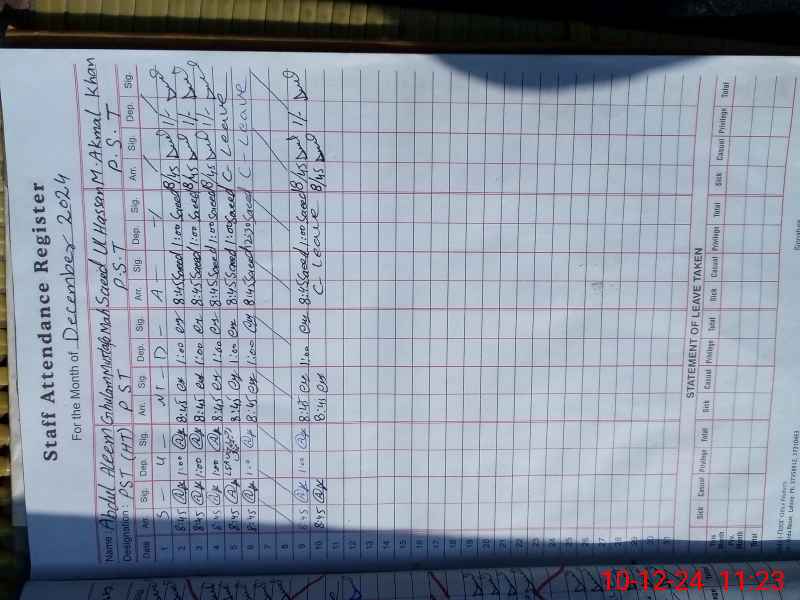 Staff Attendance Register
For the Month of December 2024
Name Abdul Aleem Ghulam Mustafa Mah Saeed Ul Hassan M. Akmal Khan
Designation: PST (HT) PST P.S.T P.S.T
Date Arr. Sig. Dep. Sig. Arr. Sig. Dep. Sig. Arr. Sig. Dep. Sig. Arr. Sig. Dep. Sig.
1 S - U - N - D - A - Y
2 8:45 1:00 8:45 1:00 8:45 Saeed 1:00 Saeed 8/45 1/-
3 8:45 1:00 8:45 1:00 8:45 Saeed 1:00 Saeed 8/45 1/-
4 8:45 1:00 8:45 1:00 8:45 Saeed 1:00 Saeed 8/45 1/-
5 8:45 8:45 1:00 8:45 Saeed 1:00 Saeed C - Leave
6 8:45 1:00 8:45 1:00 8:45 Saeed 12:30 Saeed C - Leave
7
8
9 8:45 1:00 8:45 1:00 8:45 Saeed 1:00 Saeed 8/45 1/-
10 8:45 8:45 C - Leave 8/45
11
12
13
14
15
16
17
18
19
20
21
22
23
24
25
26
27
28
29
30
STATEMENT OF LEAVE TAKEN
Sick Casual Privilege Total Sick Casual Privilege Total Sick Casual Privilege Total Sick Casual Privilege Total
This Month
Total
Signature
10-12-24 11:23